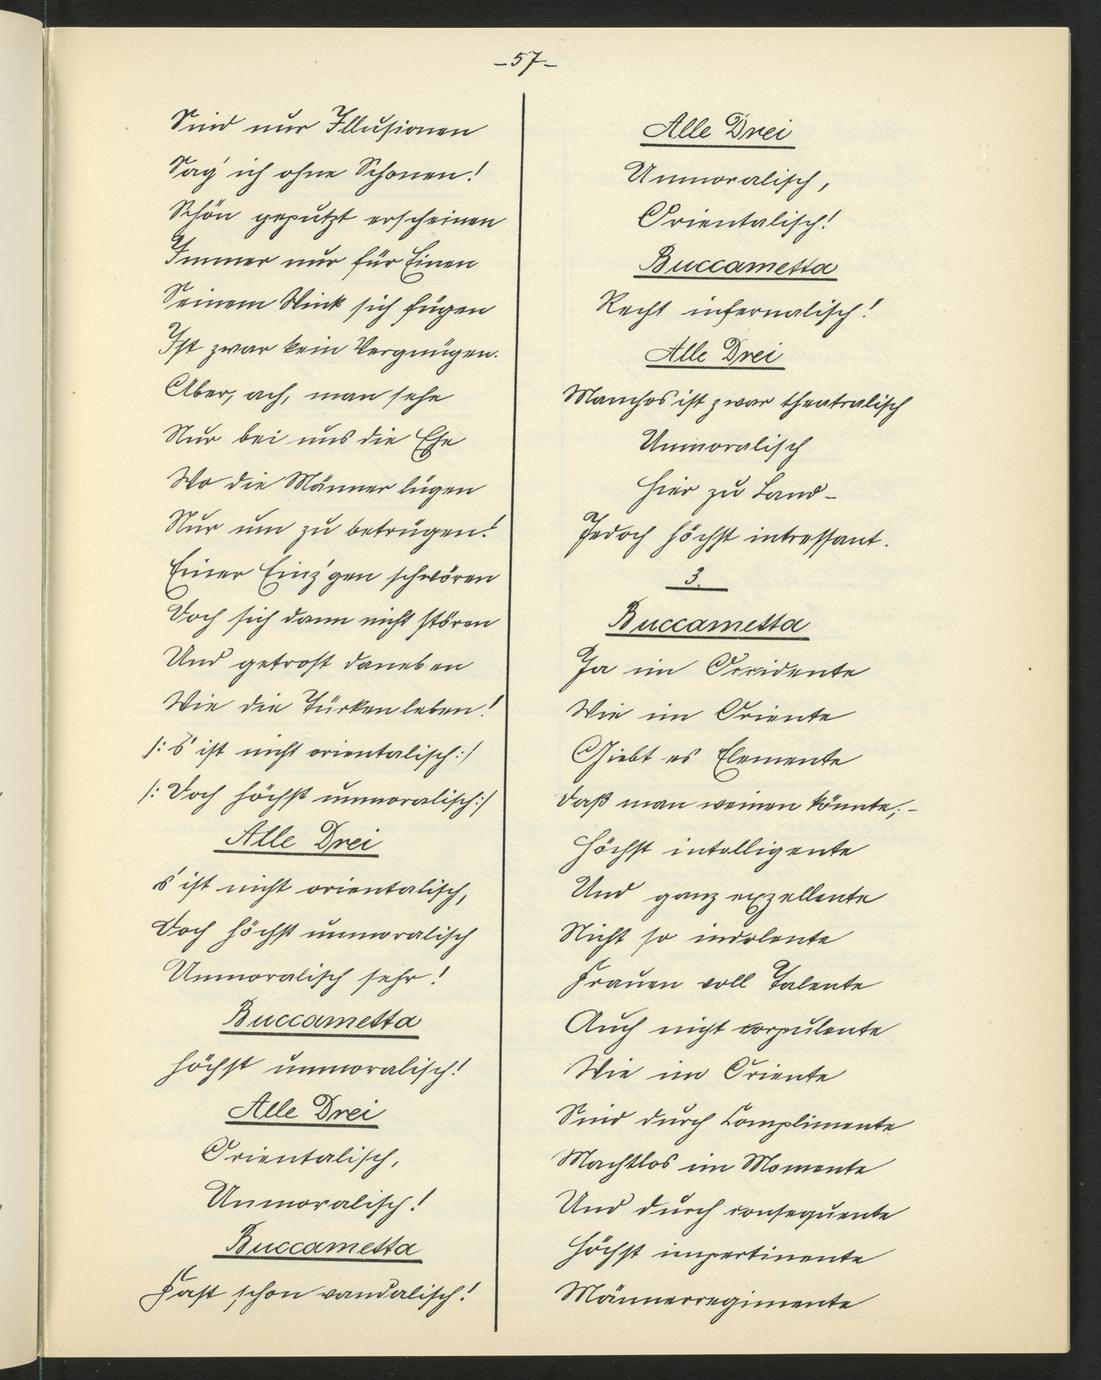 -57-
Sind nur Illusionen
Sag' ich ohne Schonen!
Schön geputzt erscheinen
Immer nur für Einen
Seinem Wink sich fügen
Ist zwar kein Vergnügen.
Aber, ach, man sehe
Nur bei uns die Ehe
Wo die Männer lügen
Nur um zu betrügen!
Einer Einz'gen schwören
Doch sich dann nicht stören
Und getrost daneben
Wie die Türken leben!
/: s' ist nicht orientalisch :/
/: Doch höchst unmoralisch :/
Alle Drei
s' ist nicht orientalisch,
Doch höchst unmoralisch
Unmoralisch sehr!
Buccametta
höchst unmoralisch!
Alle Drei
Orientalisch,
Unmoralisch!
Buccametta
Fast schon vandalisch!
Alle Drei
Unmoralisch,
Orientalisch!
Buccametta
Recht infernalisch!
Alle Drei
Manches ist zwar theatralisch
Unmoralisch
hier zu Land-
Jedoch höchst intressant.
3.
Buccametta
Ja im Occidente
Wie im Oriente
Giebt es Elemente
daß man weinen könnte;-
höchst intelligente
Und ganz exzellente
Nicht so indolente
Frauen voll Talente
Auch nicht corpulente
Wie im Oriente
Sind durch Complimente
Machtlos im Momente
Und durch consequente
höchst impertinente
Männerregimente